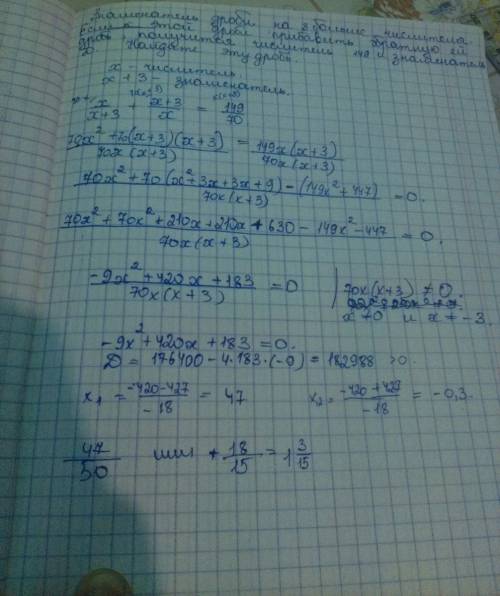 Знаменатель дроби на 3 больше числителя
если к этой дроби прибавить обратную ей
дробь получится числитель 149 и знаменатель
70. Найдите эту дробь.
x - числитель
x + 3 - знаменатель.
x/(x+3) + (x+3)/x = 149/70
(70x² + 70(x+3)(x+3))/(70x(x+3)) = 149x(x+3)/(70x(x+3))
(70x² + 70(x² + 3x + 3x + 9) - (149x² + 447))/(70x(x+3)) = 0.
(70x² + 70x² + 210x + 210x + 630 - 149x² - 447)/(70x(x+3)) = 0.
(-9x² + 420x + 183)/(70x(x+3)) = 0 70x(x+3) ≠ 0.
x ≠ 0 и x ≠ -3.
-9x² + 420x + 183 = 0.
D = 176400 - 4·183·(-9) = 182988 >0.
x₁ = (-420-427)/(-18) = 47 x₂ = (-420+427)/(-18) = -0,3.
47/50 или + 18/15 = 1 3/15